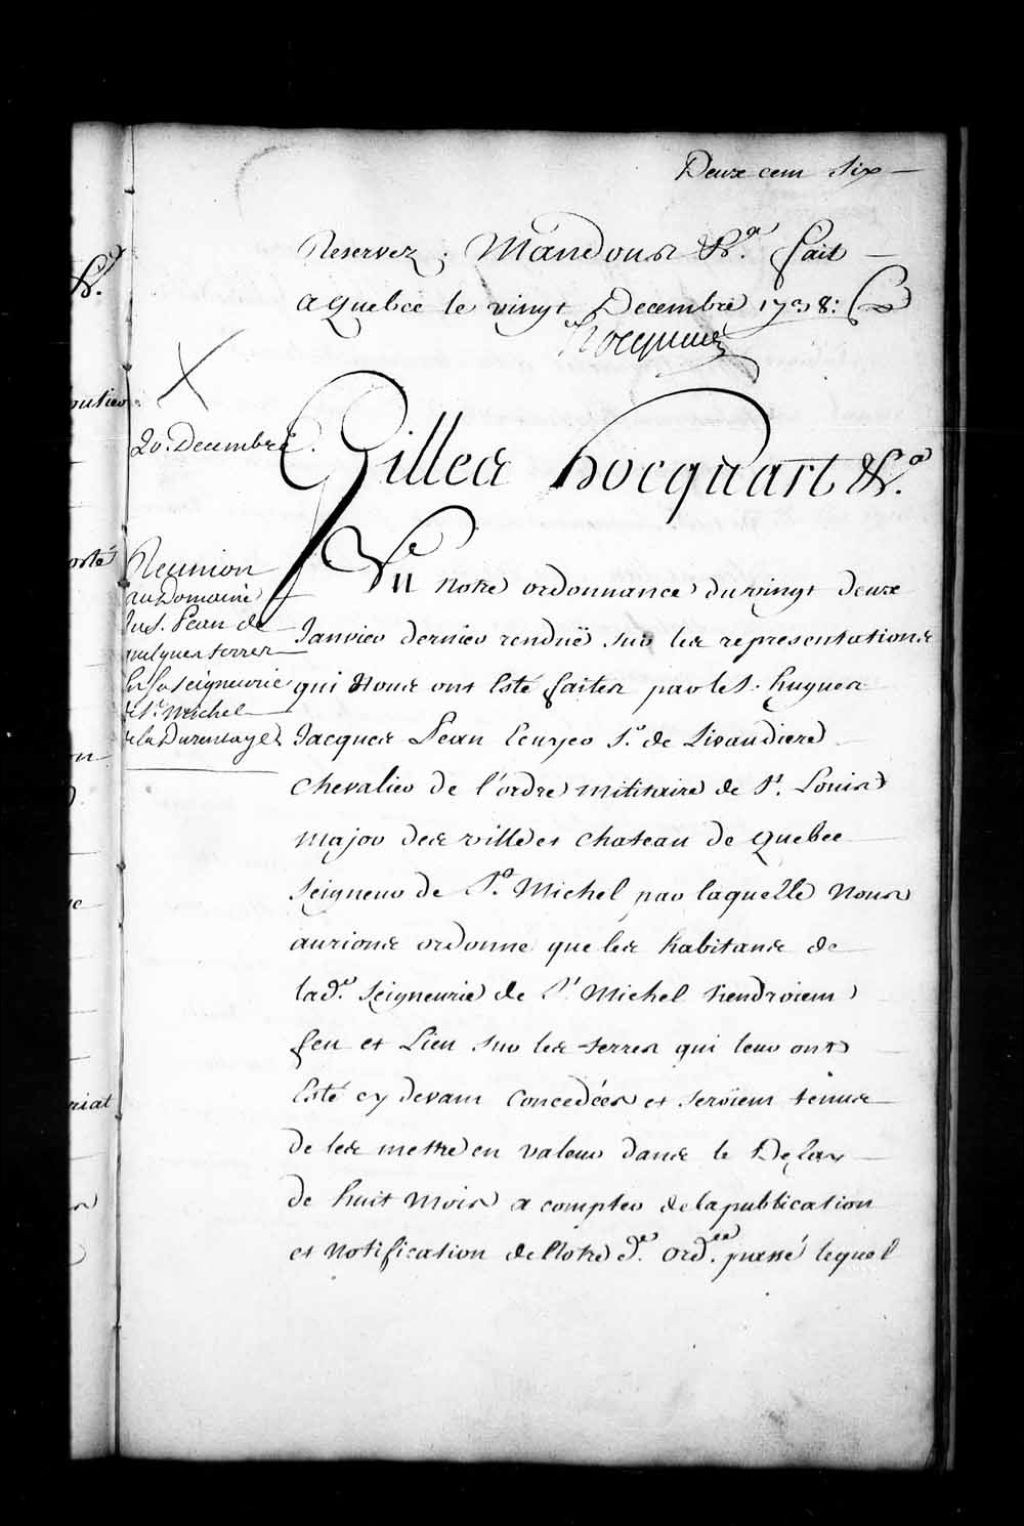 Deux cent Six
Reservez ; Mandons &c.a fait
a Quebec le vingt Decembre 1738:
hocquart
20. Decembre.
Gilles hocquart &c.a
Reunion
au Domaine
du S. Pean de
quelques terres
sur sa seigneurie
de St. Michel
de la Durentaye
Veu notre ordonnance du vingt deux
Janvier dernier rendüe sur les representations
qui Nous ont Esté faites par le S. hugues
Jacques Pean Ecuyer Sr. de Livaudiere
chevalier de l'ordre militaire de St. Louis
major des ville et chateau de Quebec
Seigneur de St. Michel par laquelle Nous
aurions ordonné que les habitans de
lad.e Seigneurie de St. Michel tiendroient
feu et Lieu sur les terres qui leur ont
Esté cy devant Concedées et seroient tenus
de les mettre en valeur dans le Delay
de huit mois a compter de la publication
et Notification de Notre d.e ord.ce passé lequel